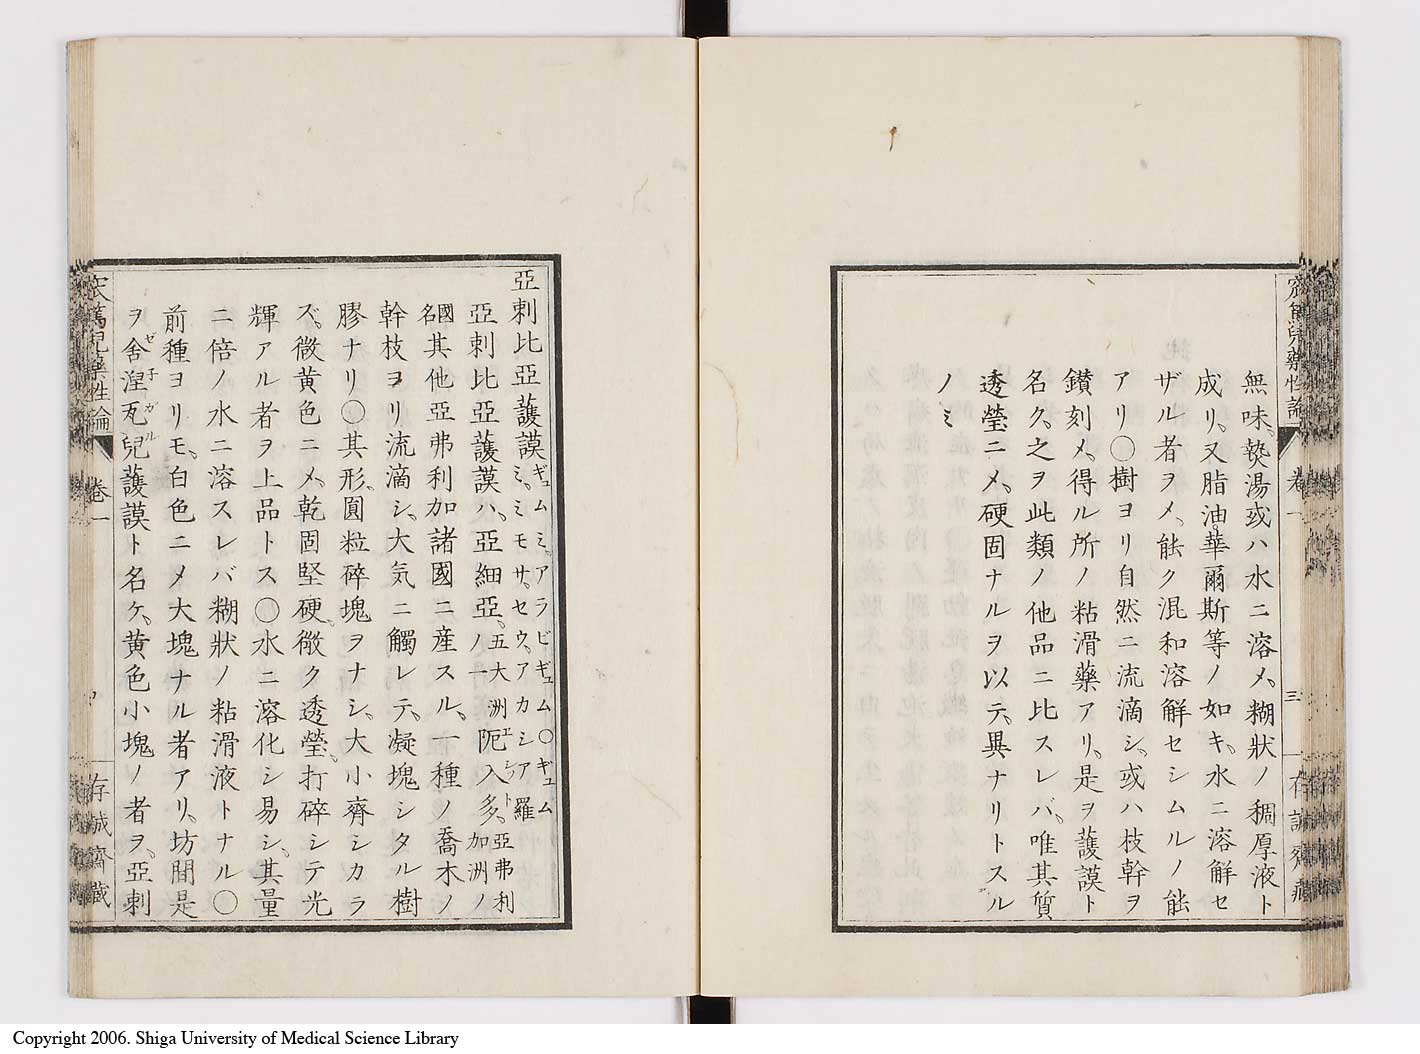 無味、𤍠湯或ハ水ニ溶メ、糊狀ノ稠厚液ト
成リ、又脂油。華爾斯等ノ如キ、水ニ溶解セ
ザル者ヲメ、能ク混和溶解セシムルノ能
アリ〇樹ヨリ自然ニ流滴シ、或ハ枝幹ヲ
鑚刻メ、得ル所ノ粘滑藥アリ、是ヲ護謨ト
名ク、之ヲ此類ノ他品ニ比スレバ、唯其質
透瑩ニメ、硬固ナルヲ以テ、異ナリトスル
ノミ
卷一
三
亞剌比亞護謨 ギュムミ、アラビギュム〇ギュム
ミ、ミモサ、セウ、アカシア羅
亞剌比亞護謨ハ、亞細亞、五大洲ノ一 阨入多、エジプト 亞弗利加洲ノ
國名 其他亞弗利加諸國ニ産スル、一種ノ喬木ノ
幹枝ヨリ流滴シ、大気ニ觸レテ、凝塊シタル樹
膠ナリ〇其形、圓粒碎塊ヲナシ、大小齊シカラ
ズ、微黄色ニメ、乾固堅硬、微ク透瑩、打碎シテ光
輝アル者ヲ上品トス〇水ニ溶化シ易シ、其量
二倍ノ水ニ溶スレバ糊狀ノ粘滑液トナル〇
前種ヨリモ、白色ニメ大塊ナル者アリ、坊間是
ヲ舍涅瓦兒護謨ト名ケ、黄色小塊ノ者ヲ、亞剌
ゼ子ガル
窊篤兒藥性論
卷一
存誠齋藏
Copyright 2006. Shiga University of Medical Science Library